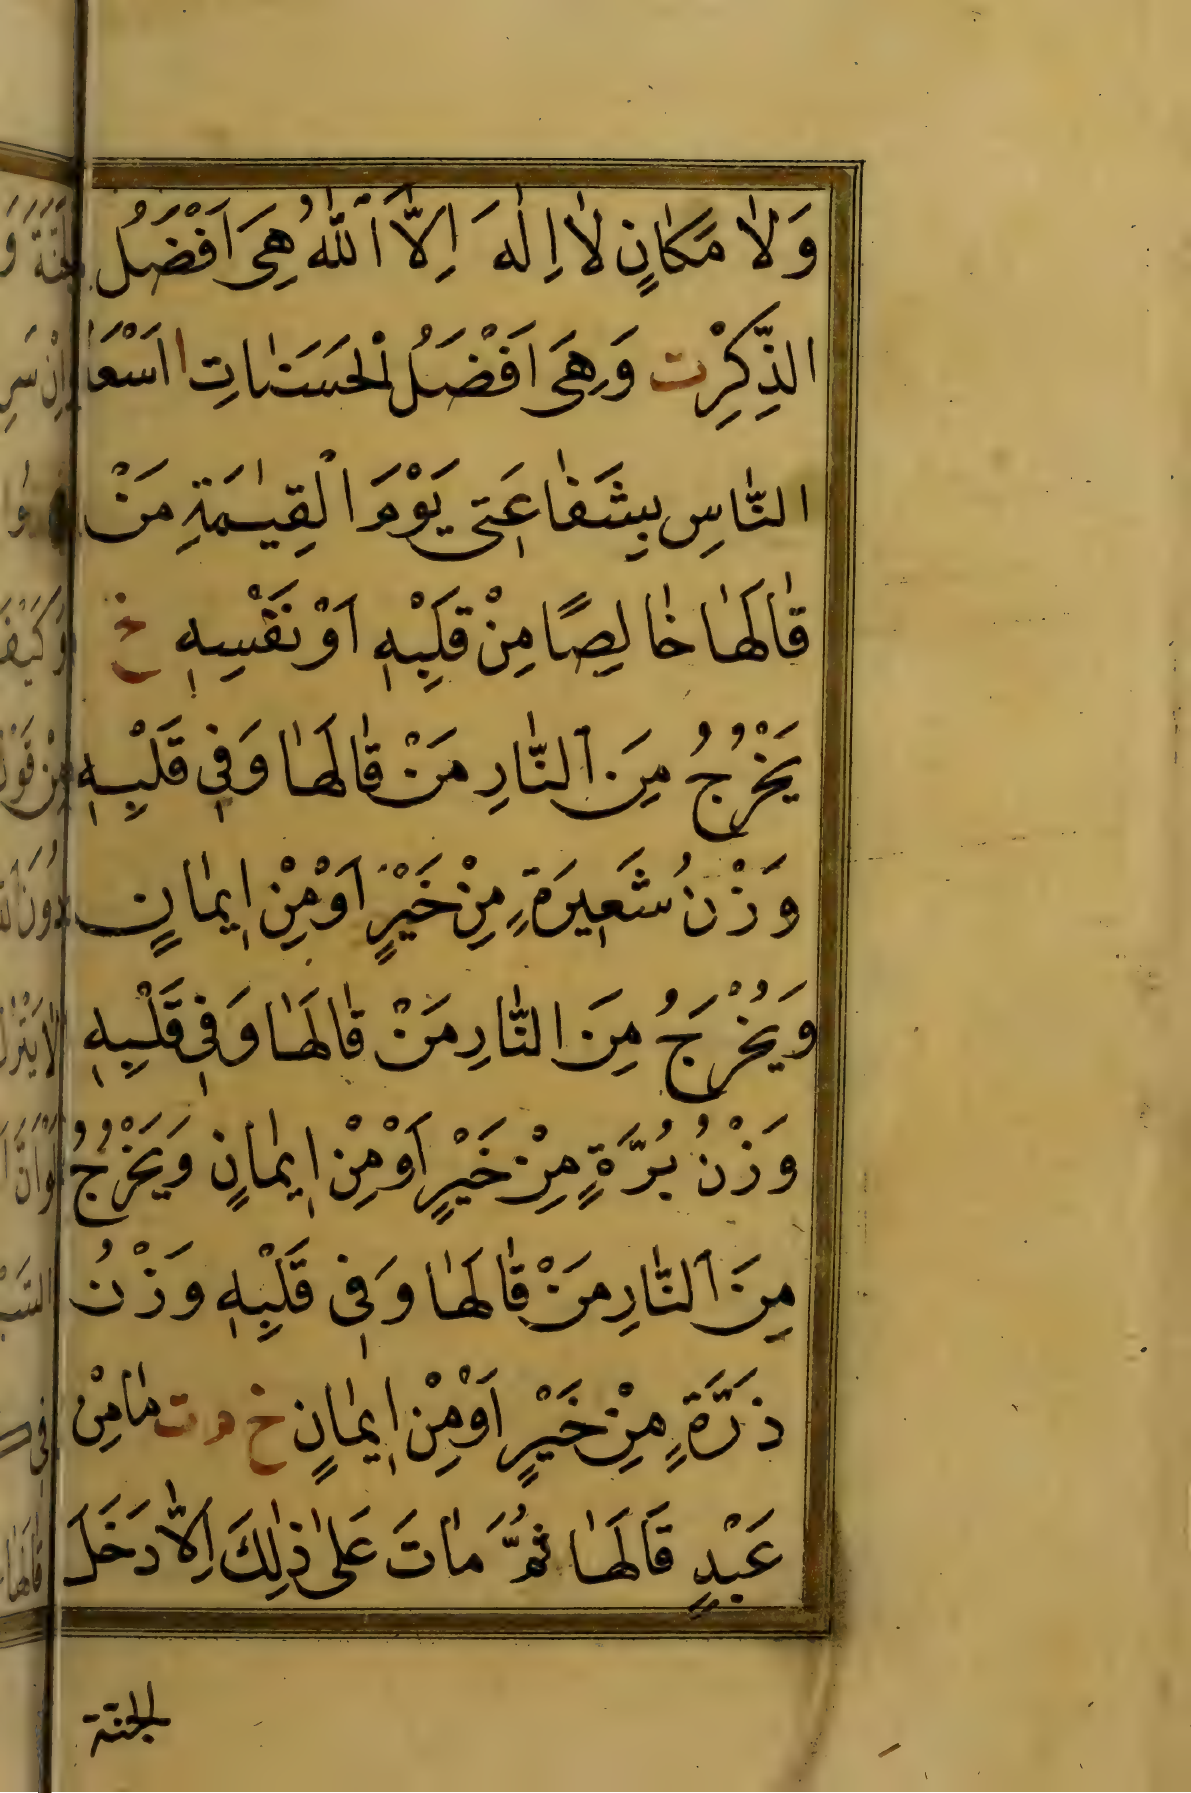 وَلَا مَكَانٍ لَا اِلٰهَ اِلَّا اللّٰهُ هِىَ اَفْضَلُ
الذِّكْرِ ت وَهِىَ اَفْضَلُ الْحَسَنَاتِ ا اَسْعَدُ
النَّاسِ بِشَفَاعَتِى يَوْمَ الْقِيٰمَةِ مَنْ
قَالَهَا خَالِصًا مِنْ قَلْبِهٖ اَوْ نَفْسِهٖ خ
يَخْرُجُ مِنَ النَّارِ مَنْ قَالَهَا وَفِى قَلْبِهٖ
وَزْنُ شَعِيرَةٍ مِنْ خَيْرٍ اَوْ مِنْ اِيمَانٍ
وَيَخْرُجُ مِنَ النَّارِ مَنْ قَالَهَا وَفِى قَلْبِهٖ
وَزْنُ بُرَّةٍ مِنْ خَيْرٍ اَوْ مِنْ اِيمَانٍ وَيَخْرُجُ
مِنَ النَّارِ مَنْ قَالَهَا وَفِى قَلْبِهٖ وَزْنُ
ذَرَّةٍ مِنْ خَيْرٍ اَوْ مِنْ اِيمَانٍ خ م ت مَا مِنْ
عَبْدٍ قَالَهَا ثُمَّ مَاتَ عَلٰى ذٰلِكَ اِلَّا دَخَلَ
الجنة